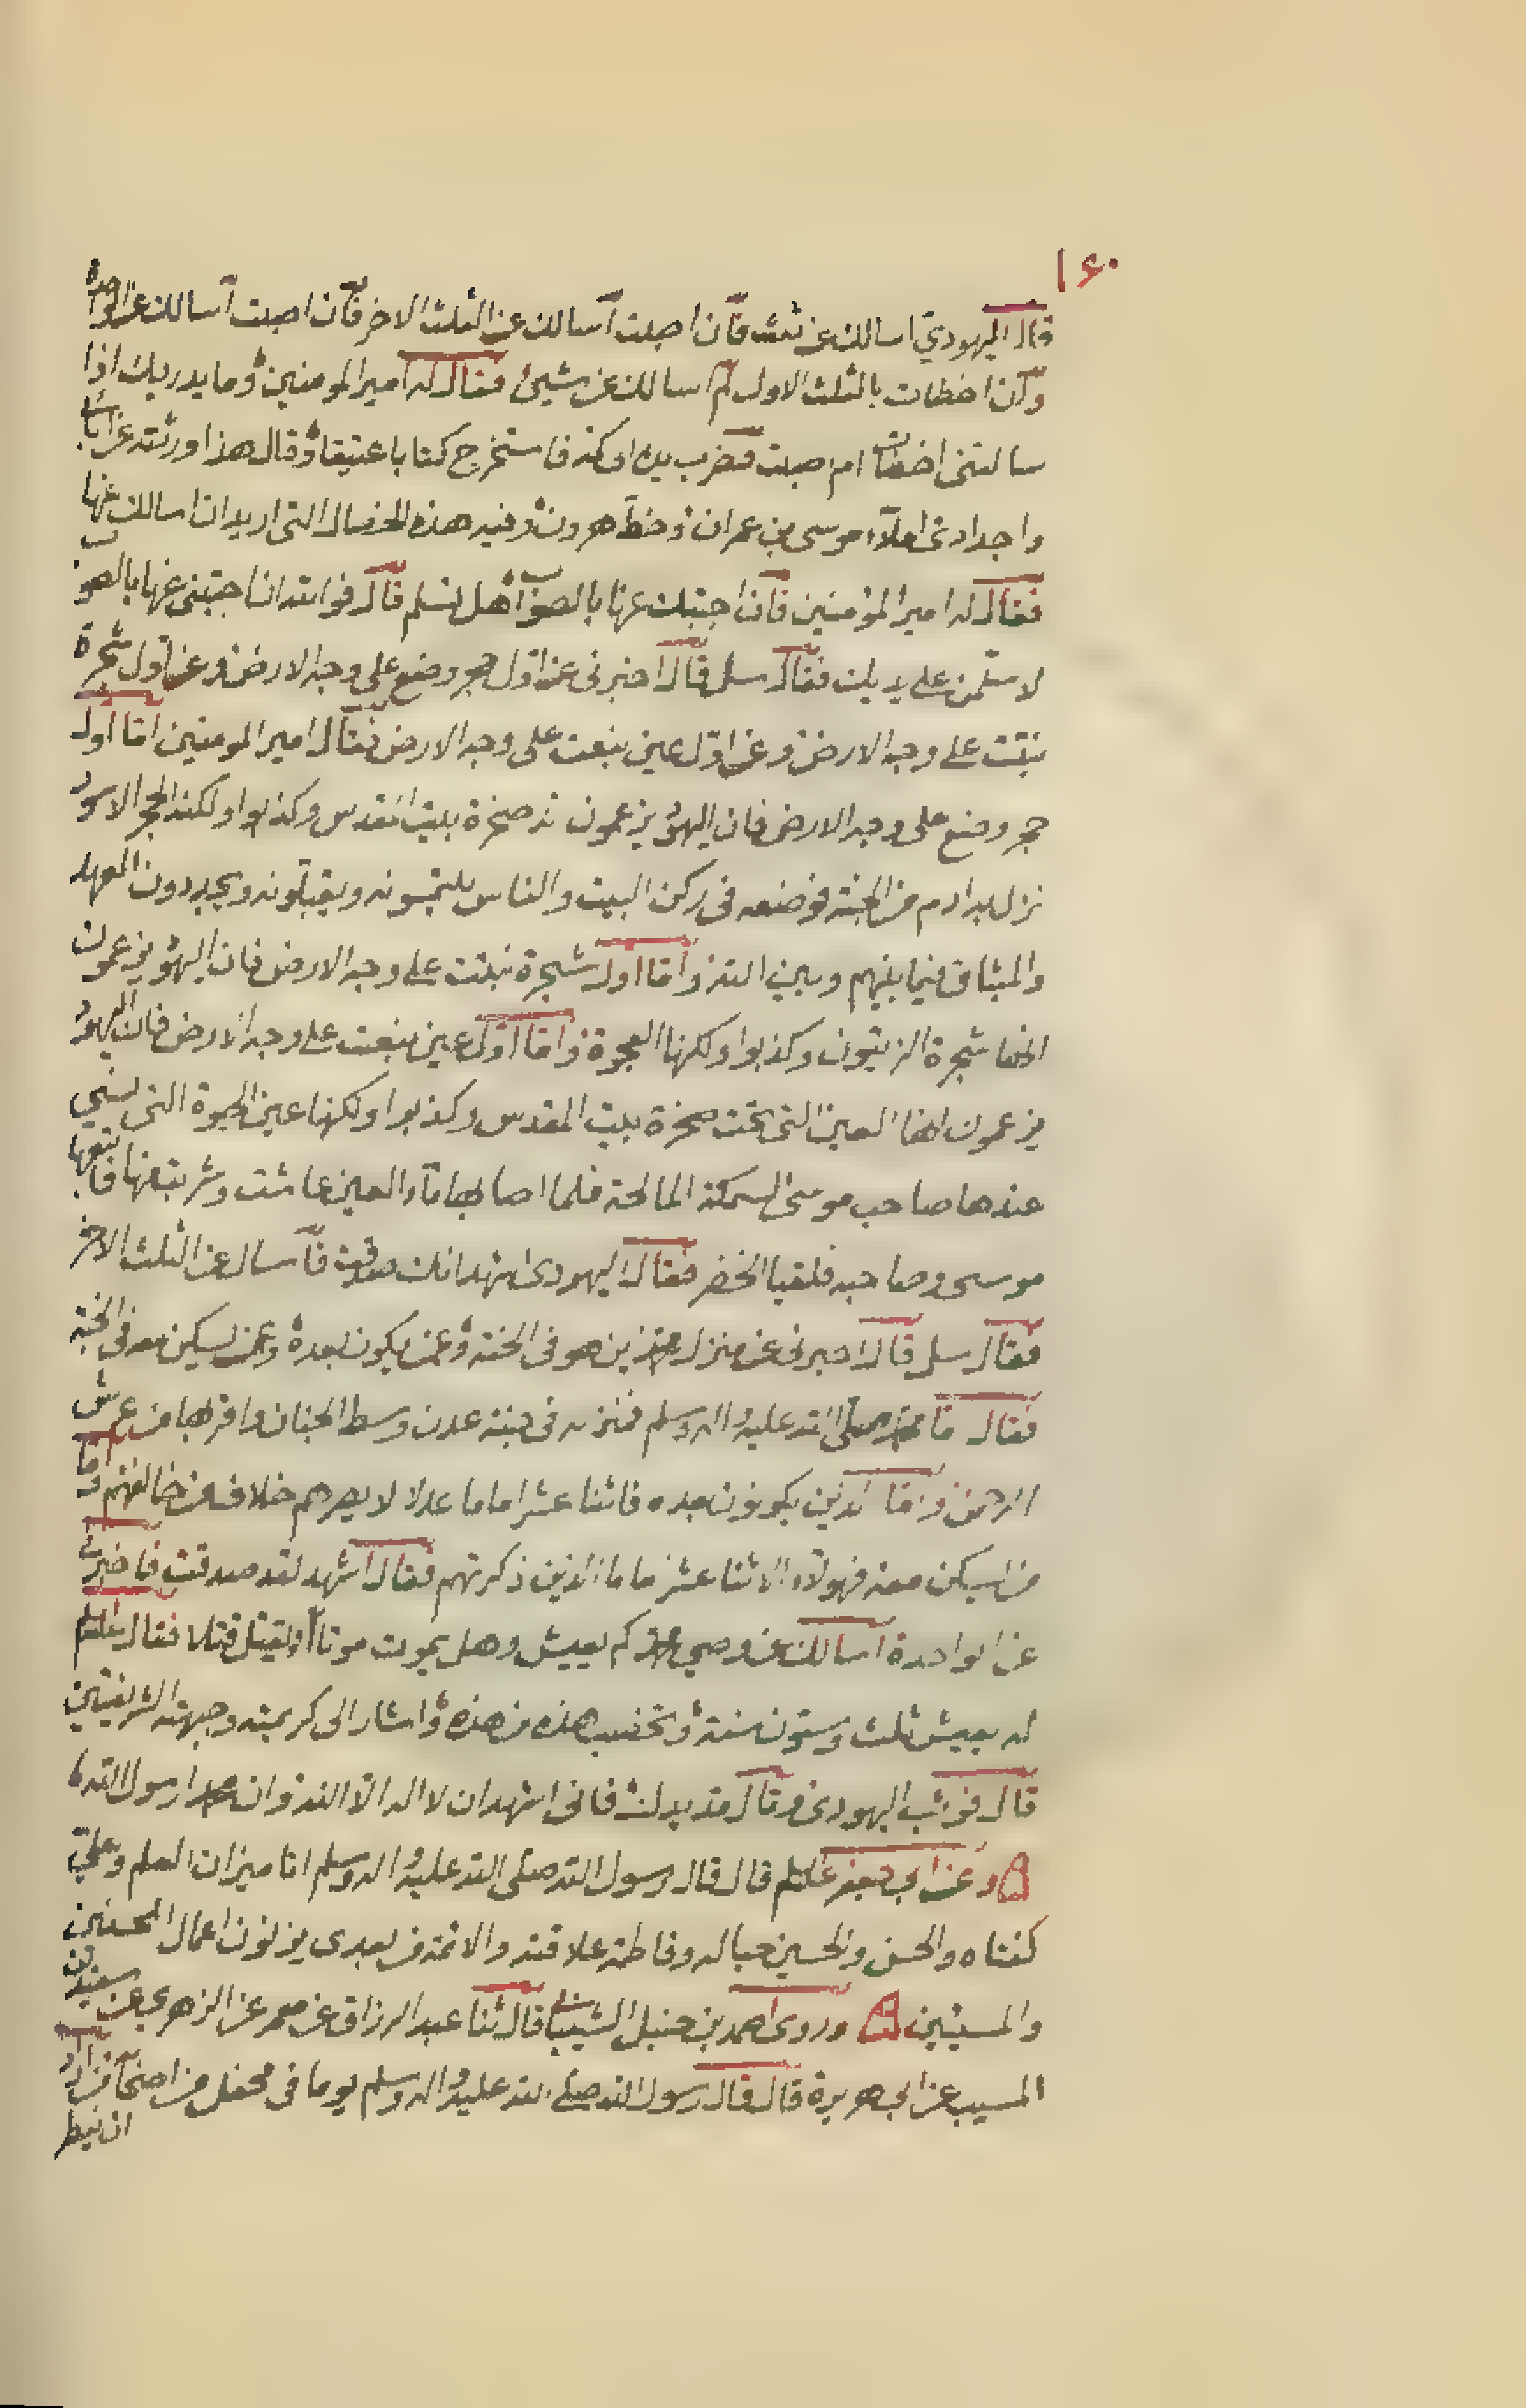 ١٤٠
قال اليهودي اسالك عن ثلث فان اصبت اسالك عن الثلث الاخر فان اصبت اسالك عن الواحدة
وان اخطات بالثلث الاول لم اسالك عن شيئ فقال له امير المومنين وما يدريك اذا
سالتنى اخطات ام اصبت فضرب يده الى كمه فاستخرج كتابا عتيقا وقال هذا ورثته عن ابائى
واجدادى املاء موسى بن عمران وخط هرون وفيه هذه الخصال التى اريد ان اسالك عنها
فقال له امير المؤمنين فان اجبتك عنها بالصواب هل تسلم قال فوالله ان اجبتنى عنها بالصواب
لاسلمن على يديك فقال سل قال اخبرنى عن اول حجر وضع على وجه الارض وعن اول شجرة
نبتت على وجه الارض وعن اول عين نبعت على وجه الارض فقال امير المومنين اما اول
حجر وضع على وجه الارض فان اليهود يزعمون انه صخرة بيت المقدس وكذبوا ولكنه الحجر الاسود
نزل به ادم من الجنة فوضعه فى ركن البيت والناس يلتمسونه ويقبلونه ويجددون العهد
والميثاق فيما بينهم وبين الله واما اول شجرة نبتت على وجه الارض فان اليهود يزعمون
انها شجرة الزيتون وكذبوا ولكنها العجوة واما اول عين نبعت على وجه الارض فان اليهود
يزعمون انها العين التى تحت صخرة بيت المقدس وكذبوا ولكنها عين الحيوة التى نسى
عندها صاحب موسى السمكة المالحة فلما اصابها ماء العين عاشت وشربت منها فاتبعها
موسى وصاحبه فلقيا الخضر فقال اليهودى اشهد انك صدقت فاسال عن الثلث الاخر
فقال سل قال اخبرنى عن منزل محمد اين هو فى الجنة وعن يكون بعده وعن يسكن معه فى الجنة
فقال اما محمد صلى الله عليه واله وسلم فمنزله فى جنة عدن وسط الجنان واقربها من عرش
الرحمن واما الذين يكونون بعده فاثنا عشر اماما عدلا لا يضرهم خلاف من خالفهم واما
من يسكن معه فهولاء الاثنا عشر اماما الذين ذكرتهم فقال اشهد لقد صدقت فاخبرنى
عن الواحدة اسالك عن وصى محمد كم يعيش وهل يموت موتا او يقتل قتلا فقال عليلم
له يعيش ثلث وستون سنة وتخضب هذه من هذه واشار الى كريمته وجبهته الشريفتين
قال فوثب اليهودى وقال مد يدك فانى اشهد ان لا اله الا الله وان محمدا رسول الله
وعن ابى جعفر عليلم قال قال رسول الله صلى الله عليه واله وسلم انا ميزان العلم وعلى
كفتاه والحسن والحسين حباله وفاطمة علاقته والائمة من بعدى يزنون اعمال المحسنين
والمسيئين وروى احمد بن حنبل الشيبانى قال ثنا عبد الرزاق عن معمر عن الزهرى عن سعيد بن
المسيب عن ابى هريرة قال قال رسول الله صلى الله عليه واله وسلم يوما فى محفل من اصحابه من اراد
ان ينظر